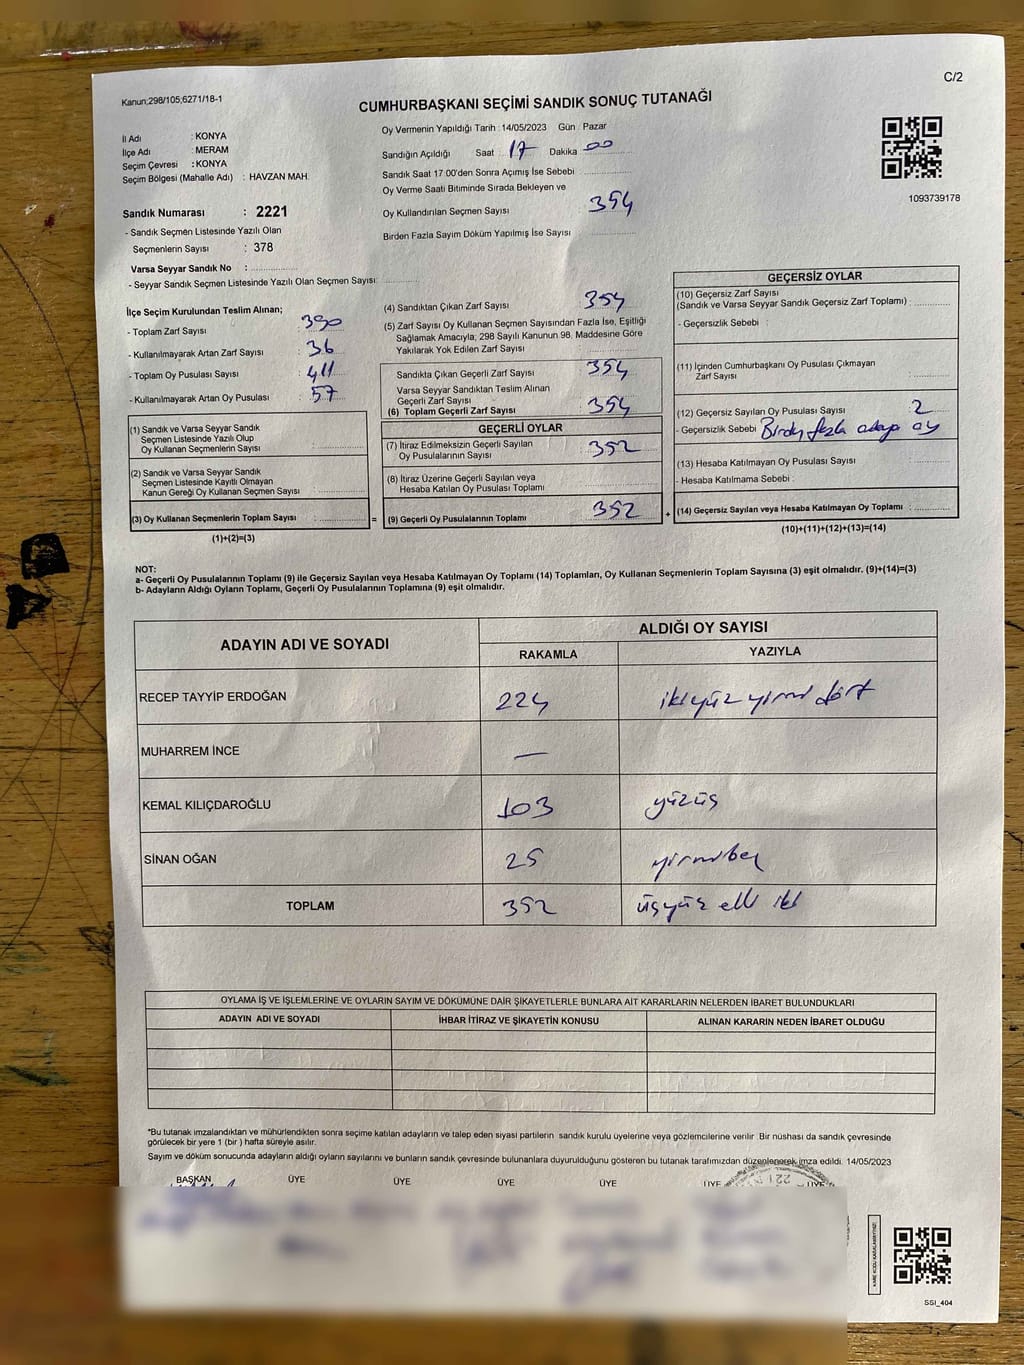 Kanun;298/105;6271/18-1
C/2
CUMHURBAŞKANI SEÇİMİ SANDIK SONUÇ TUTANAĞI
İl Adı : KONYA
İlçe Adı : MERAM
Seçim Çevresi : KONYA
Seçim Bölgesi (Mahalle Adı) : HAVZAN MAH.
Sandık Numarası : 2221
- Sandık Seçmen Listesinde Yazılı Olan
Seçmenlerin Sayısı : 378
Varsa Seyyar Sandık No :
- Seyyar Sandık Seçmen Listesinde Yazılı Olan Seçmen Sayısı
Oy Vermenin Yapıldığı Tarih : 14/05/2023 Gün : Pazar
Sandığın Açıldığı Saat : 17 Dakika 00
Sandık Saat 17:00'den Sonra Açımış İse Sebebi
Oy Verme Saati Bitiminde Sırada Bekleyen ve
Oy Kullandırılan Seçmen Sayısı 354
Birden Fazla Sayım Döküm Yapılmış İse Sayısı :
1093739178
İlçe Seçim Kurulundan Teslim Alınan;
- Toplam Zarf Sayısı : 390
- Kullanılmayarak Artan Zarf Sayısı : 36
- Toplam Oy Pusulası Sayısı : 411
- Kullanılmayarak Artan Oy Pusulası : 57
(1) Sandık ve Varsa Seyyar Sandık
Seçmen Listesinde Yazılı Olup
Oy Kullanan Seçmenlerin Sayısı :
(2) Sandık ve Varsa Seyyar Sandık
Seçmen Listesinde Kayıtlı Olmayan
Kanun Gereği Oy Kullanan Seçmen Sayısı :
(3) Oy Kullanan Seçmenlerin Toplam Sayısı :
(1)+(2)=(3)
=
(4) Sandıktan Çıkan Zarf Sayısı 354
(5) Zarf Sayısı Oy Kullanan Seçmen Sayısından Fazla İse, Eşitliği
Sağlamak Amacıyla; 298 Sayılı Kanunun 98. Maddesine Göre
Yakılarak Yok Edilen Zarf Sayısı
Sandıkta Çıkan Geçerli Zarf Sayısı : 354
Varsa Seyyar Sandıktan Teslim Alınan
Geçerli Zarf Sayısı :
(6) Toplam Geçerli Zarf Sayısı : 354
GEÇERLİ OYLAR
(7) İtiraz Edilmeksizin Geçerli Sayılan
Oy Pusulalarının Sayısı : 352
(8) İtiraz Üzerine Geçerli Sayılan veya
Hesaba Katılan Oy Pusulası Toplamı :
(9) Geçerli Oy Pusulalarının Toplamı : 352
+
GEÇERSİZ OYLAR
(10) Geçersiz Zarf Sayısı
(Sandık ve Varsa Seyyar Sandık Geçersiz Zarf Toplamı) :
- Geçersizlik Sebebi :
(11) İçinden Cumhurbaşkanı Oy Pusulası Çıkmayan
Zarf Sayısı :
(12) Geçersiz Sayılan Oy Pusulası Sayısı : 2
- Geçersizlik Sebebi : Birden fazla adaya oy
(13) Hesaba Katılmayan Oy Pusulası Sayısı :
- Hesaba Katılmama Sebebi :
(14) Geçersiz Sayılan veya Hesaba Katılmayan Oy Toplamı :
(10)+(11)+(12)+(13)=(14)
NOT:
a- Geçerli Oy Pusulalarının Toplamı (9) ile Geçersiz Sayılan veya Hesaba Katılmayan Oy Toplamı (14) Toplamları, Oy Kullanan Seçmenlerin Toplam Sayısına (3) eşit olmalıdır. (9)+(14)=(3)
b- Adayların Aldığı Oyların Toplamı, Geçerli Oy Pusulalarının Toplamına (9) eşit olmalıdır.
ADAYIN ADI VE SOYADI ALDIĞI OY SAYISI
RAKAMLA YAZIYLA
RECEP TAYYİP ERDOĞAN 224 ikiyüz yirmi dört
MUHARREM İNCE —
KEMAL KILIÇDAROĞLU 103 yüzüç
SİNAN OĞAN 25 yirmibeş
TOPLAM 352 üçyüz elli iki
OYLAMA İŞ VE İŞLEMLERİNE VE OYLARIN SAYIM VE DÖKÜMÜNE DAİR ŞİKAYETLERLE BUNLARA AİT KARARLARIN NELERDEN İBARET BULUNDUKLARI
ADAYIN ADI VE SOYADI İHBAR İTİRAZ VE ŞİKAYETİN KONUSU ALINAN KARARIN NEDEN İBARET OLDUĞU
*Bu tutanak imzalandıktan ve mühürlendikten sonra seçime katılan adayların ve talep eden siyasi partilerin sandık kurulu üyelerine veya gözlemcilerine verilir. Bir nüshası da sandık çevresinde
görülecek bir yere 1 (bir) hafta süreyle asılır.
Sayım ve döküm sonucunda adayların aldığı oyların sayılarını ve bunların sandık çevresinde bulunanlara duyurulduğunu gösteren bu tutanak tarafımızdan düzenlenerek imza edildi. 14/05/2023
BAŞKAN ÜYE ÜYE ÜYE ÜYE ÜYE ÜYE
SSI_404